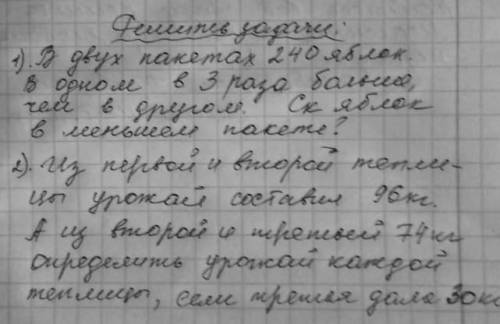 Решить задачи:
1). В двух пакетах 240 яблок.
В одном в 3 раза больше,
чем в другом. Ск яблок
в меньшем пакете?
2). Из первой и второй тепли-
цы урожай составил 96 кг.
А из второй и третьей 74 кг
определить урожай каждой
теплицы, если третья дала 30 кг